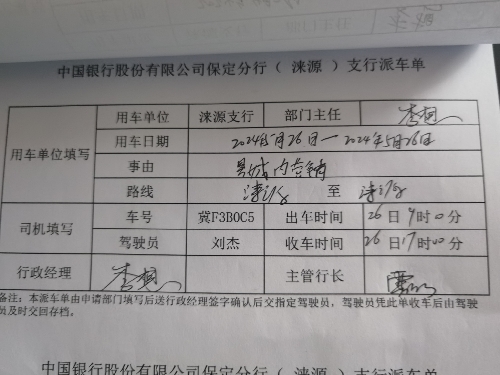 中国银行股份有限公司保定分行（ 涞源 ）支行派车单
用车单位填写 用车单位 涞源支行 部门主任
用车日期 2024年5月26日—2024年5月26日
事由 县城内营销
路线 涞源 至 涞源
司机填写 车号 冀F3B0C5 出车时间 26日9时00分
驾驶员 刘杰 收车时间 26日17时00分
行政经理 主管行长
备注：本派车单由申请部门填写后送行政经理签字确认后交指定驾驶员，驾驶员凭此单收车后由驾驶
员及时交回存档。
中国银行股份有限公司保定分行（ 涞源 ）支行派车单